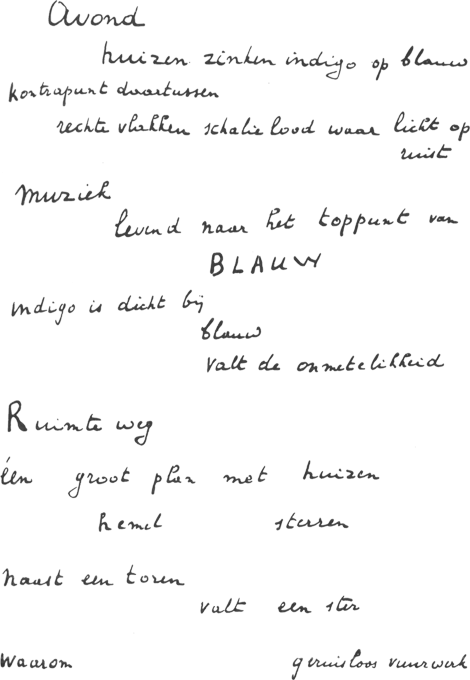 Avond
huizen zinken indigo op blauw
kontrapunt daartussen
rechte vlakken schalie lood waar licht op
ruist
Muziek
levend naar het toppunt van
BLAUW
indigo is dicht bij
blauw
valt de onmetelikheid
Ruimte weg
één groot plan met huizen
hemel sterren
naast een toren
valt een ster
Waarom geruisloos vuurwerk